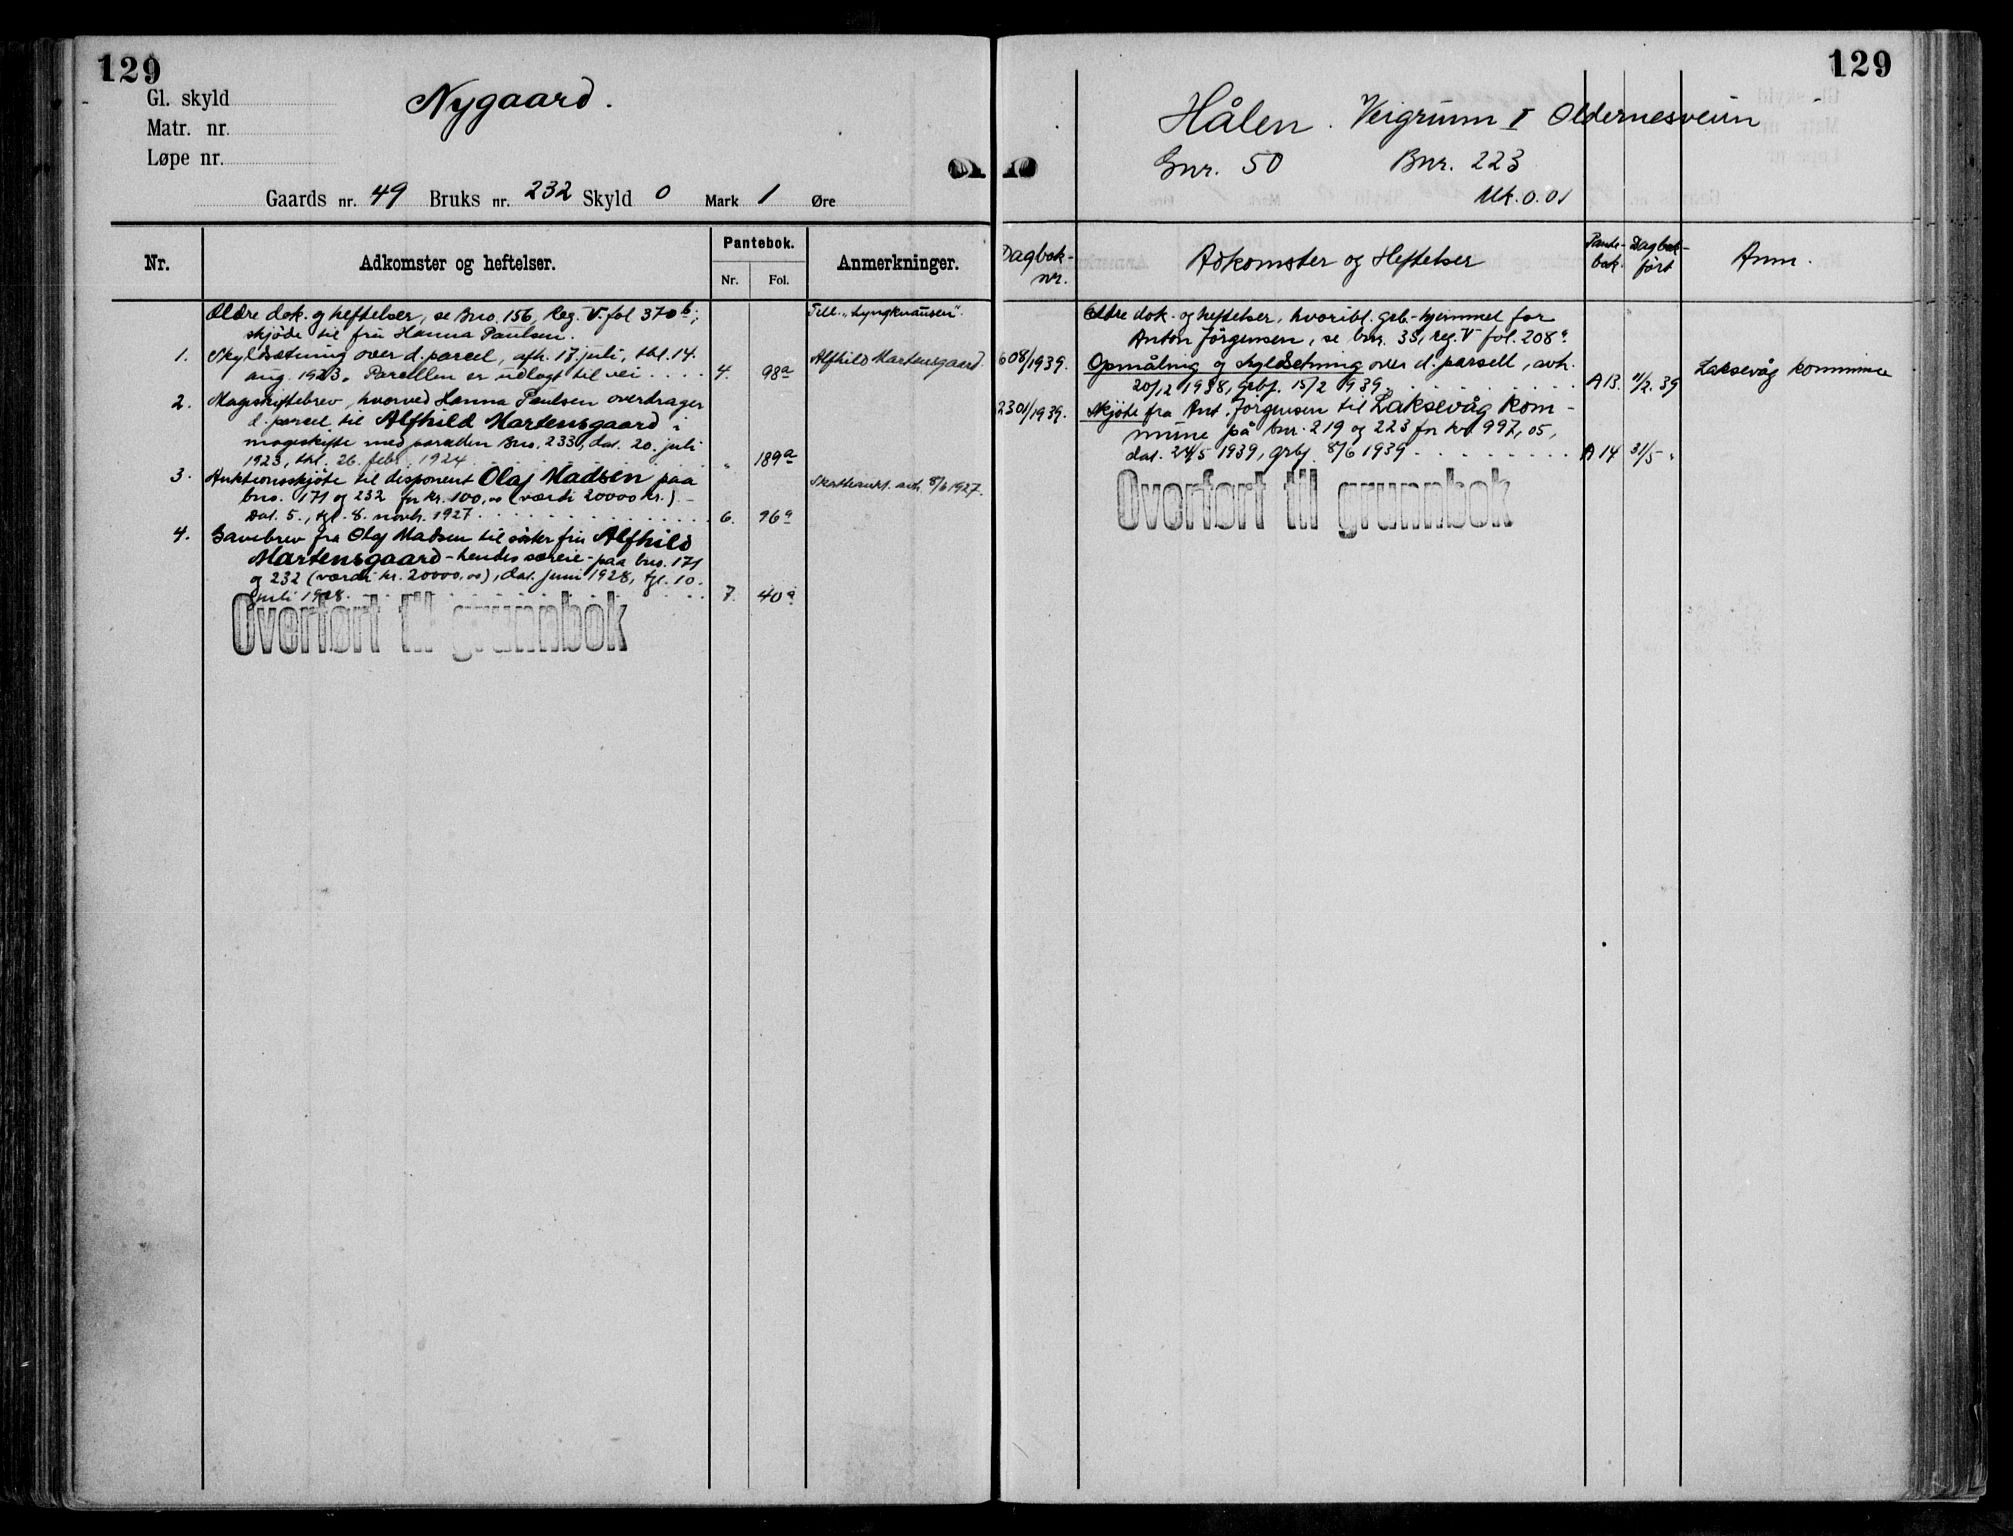 129
Gl. skyld
Matr. nr.
Løpe nr.
Nygaard.
Gaards nr. 49 Bruks nr. 232 Skyld 0 Mark 1 Øre
Nr.
Adkomster og heftelser.
Pantebok.
Nr.
Fol.
Anmerkninger.
Ældre dok. og heftelser, se Bno. 156, Reg. V. fol 370 b;
skjøde til fru Hanna Paulsen.
Till. „Lyngknausen".
1. Skyldsætning over d. parcel, afh. 17. juli, thl. 14.
aug. 1923. Parcellen er udlagt til vei .... 4. 98a
Alfhild Martensgaard.
2. Mageskiftebrev, hvorved Hanna Paulsen overdrager
d. parcel til Alfhild Martensgaard i
mageskifte med parcelen Bno. 233, dat. 20. juli
1923, thl. 26. febr. 1924 .... „ 189a
3. Auktionsskjøte til disponent Olaf Madsen paa
bno. 171 og 232 for kr. 100,00 (værdi 20000 kr.) -
Dat. 5., tgl. 8. novbr. 1927 .... 6. 96a
8/6 1927.
4. Gavebrev fra Olaf Madsen til søster fru Alfhild
Martensgaard - hendes særeie - paa bno. 171
og 232 (værdi kr. 20000,00), dat. juni 1928, tgl. 10.
juli 1928. .... 7. 40a
Overført til grunnbok
129
Hålen. Veigrunn I Oldernesveien
Gnr. 50 Bnr. 223
Mk. 0.01
Dagbok-
nr.
Adkomster og Heftelser
Pante-
bok.
Dagbok-
ført
Anm.
Eldre dok. og heftelser, hvoribl. grb-hjemmel for
Anton Jörgensen, se bnr. 35, reg. V fol. 208a
608/1939. Opmåling og skyldsetning over d. parsell, avh.
20/12 1938, grbf. 15/2 1939 .... A 13. 11/2. 39
Laksevåg kommune
2301/1939. Skjöte fra Ant. Jörgensen til Laksevåg kom-
mune på bnr. 219 og 223 for kr 997,05,
dat. 24/5 1939, grbf. 8/6 1939 .... A 14 31/5 „
Overført til grunnbok